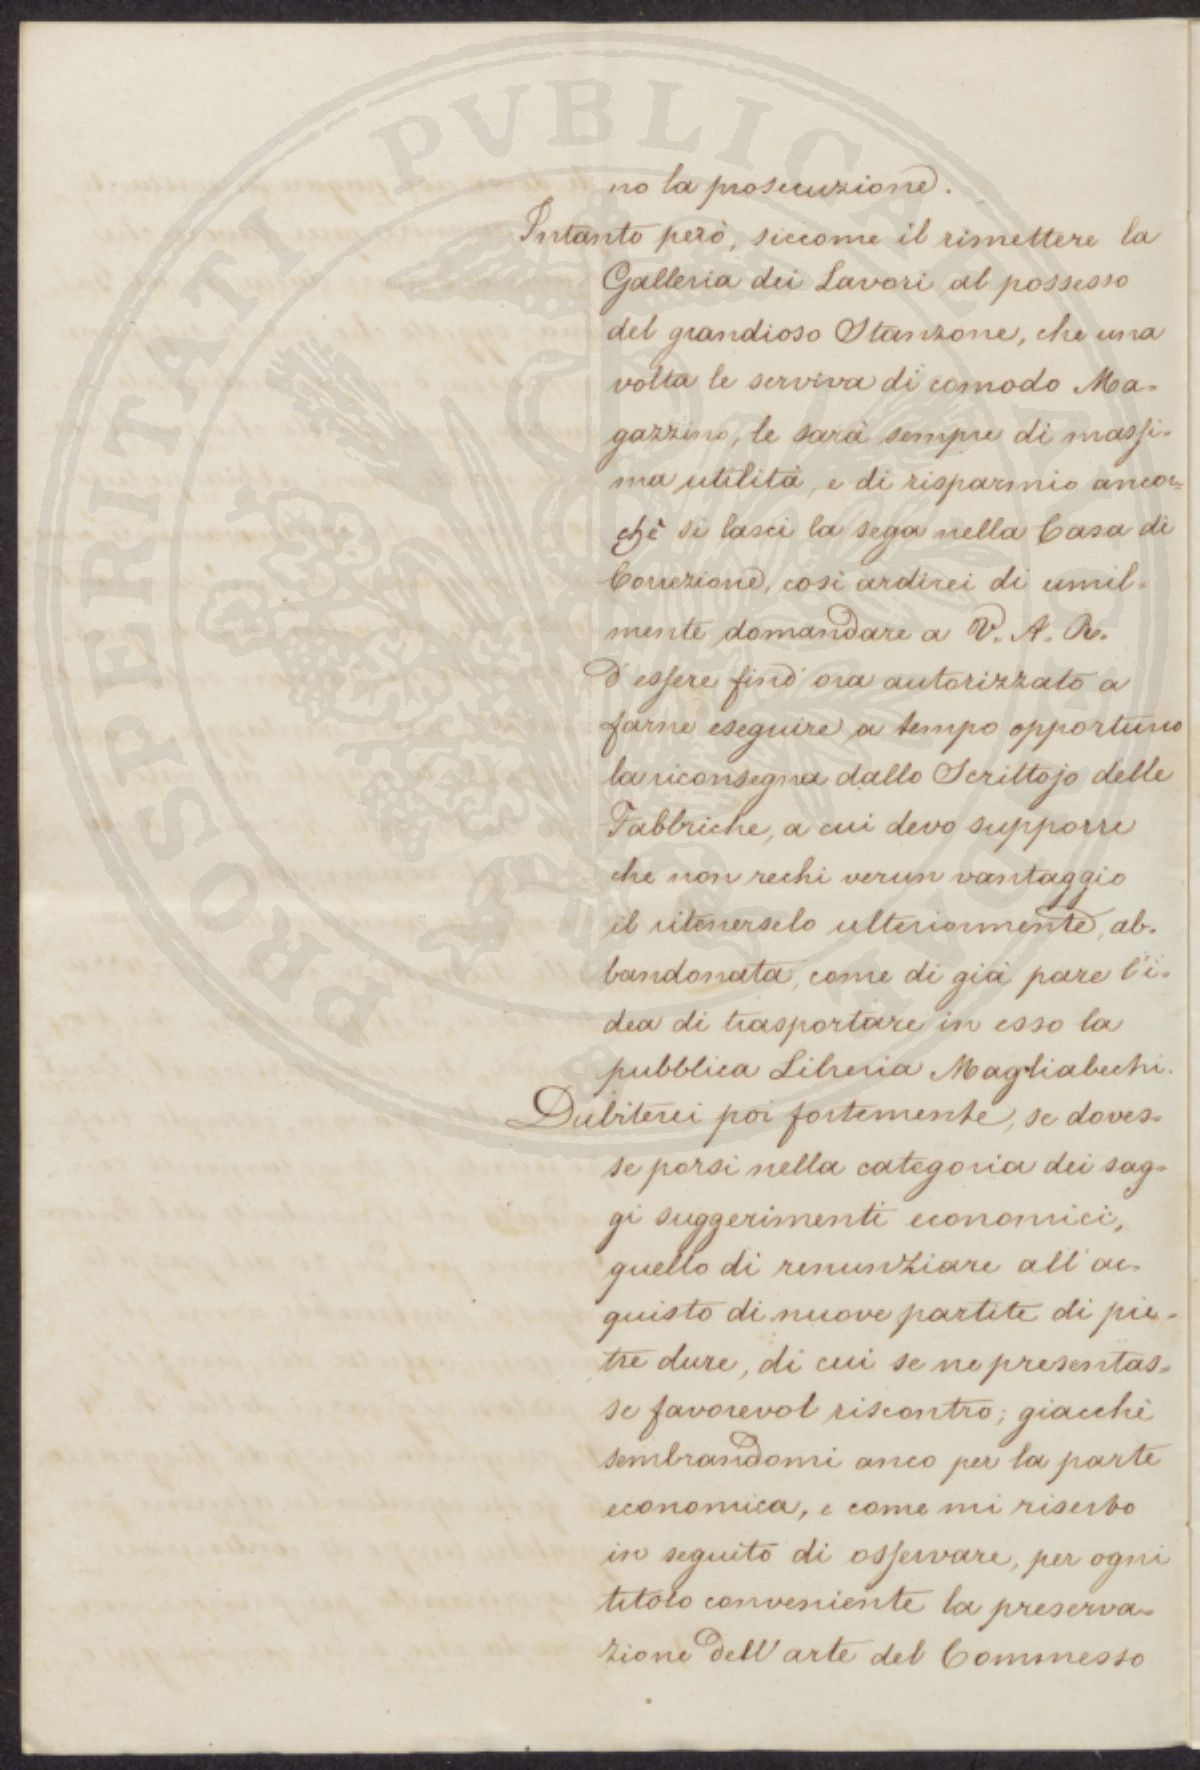 no la prosecuzione.
Intanto però, siccome il rimettere la
Galleria dei Lavori al possesso
del grandioso Stanzone, che una
volta le serviva di comodo Ma-
gazzino, le sarà sempre di massi-
ma utilità, e di risparmio ancor=
chè si lasci la sega nella Casa di
Correzione, così ardirei di umil-
mente domandare a V. A. R.
d'essere find'ora autorizzato a
farne eseguire a tempo opportuno
la riconsegna dallo Scrittojo delle
Fabbriche, a cui devo supporre
che non rechi verun vantaggio
il ritenerselo ulteriormente, ab-
bandonata, come di già pare l'i-
dea di trasportare in esso la
pubblica Libreria Magliabechi.
Dubiterei poi fortemente, se doves-
se porsi nella categoria dei sag-
gi suggerimenti economici,
quello di renunziare all'ac-
quisto di nuove partite di pie-
tre dure, di cui se ne presentas-
se favorevol riscontro; giacchè
sembrandomi anco per la parte
economica, e come mi riserbo
in seguito di osservare, per ogni
titolo conveniente la preserva-
zione dell'arte del Commesso
PROSPERITATI PVBLICAE